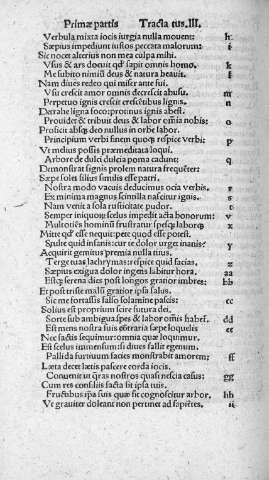 Primæ partis Tracta tus.III.
Verbula mixta iocis iurgia nulla mouent: h
Sæpius impediunt iustos peccata malorum: i
Sic nocet alterius non mea culpa mihi.
Vsus & ars docuit qđ sapit omnis homo. k
Me subito nimiū deus & natura beauit. l
Nam diues redeo qui miser ante fui.
Vsu crescit amor omnis decrescit abusu. m
Perpetuo ignis crescit crescētibus lignis. n
Detrahe ligna foco: protinus ignis abest.
Prouidet & tribuit deus & labor omīa nobis: o
Proficit absq; deo nullus in orbe labor.
Principium verbi finem quoq; respice verbi: p
Vt melius possis præmeditata loqui.
Arbore de dulci dulcia poma cadunt: q
Demonstrat lignis prolem natura frequēter:
Sæpe solet filius similis esse patri.
Nostra modo vacuis deducimus ocia verbis. r
Ex minima magnus scintilla nascitur ignis. s
Nam venit a sola rusticitate pudor. t
Semper iniquoq; scelus impedit acta bonorum: v
Multoties hominū frustratur spesq; laborq; x
Mitte qđ esse nequit: pete quod esse potest.
Spiritus quid insanis: cur te dolor vrget inanis? y
Acquirit gemitus præmia nulla tuus.
Terge tuas lachrymas: respice quid facias, z
Sæpius exigua dolor ingens labitur hora. aa
Estq; serena dies post longos gratior imbres: bb
Et post triste malū gratior ipsa salus.
Sic me fortassis falso solamine pascis: cc
Solius est proprium scire futura dei.
Sorte sub ambigua spes & labor omīs habet. dd
Est mens nostra suis eōtraria sæpe loquelis ee
Nec factis sequimur: omnia quæ loquimur.
Est scelus immensum: si diues fallit egenum.
Pallida furtiuum facies monstrabit amorem: ff
Læta decet lætis pascere corda iocis.
Conuenit ut q̄ras nostros quasi nescia casus: gg
Cum res consiliis facta sit ipsa tuis.
Fructibus ipsa suis quæ sit cognoscitur arbor. hh
Ve grauiter doleant non permet ad sapiētes. ii